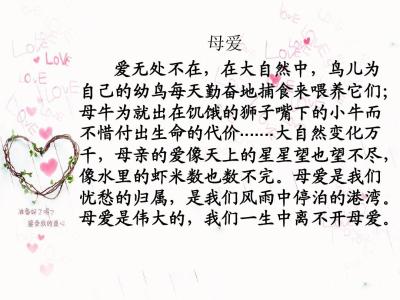 母爱
爱无处不在，在大自然中，鸟儿为
自己的幼鸟每天勤奋地捕食来喂养它们；
母牛为就出在饥饿的狮子嘴下的小牛而
不惜付出生命的代价.......大自然变化万
千，母亲的爱像天上的星星望也望不尽，
像水里的虾米数也数不完。母爱是我们
忧愁的归属，是我们风雨中停泊的港湾。
母爱是伟大的，我们一生中离不开母爱。
LOVE
LOVE
LOVE
LOVE
LOVE
准备好了吗？